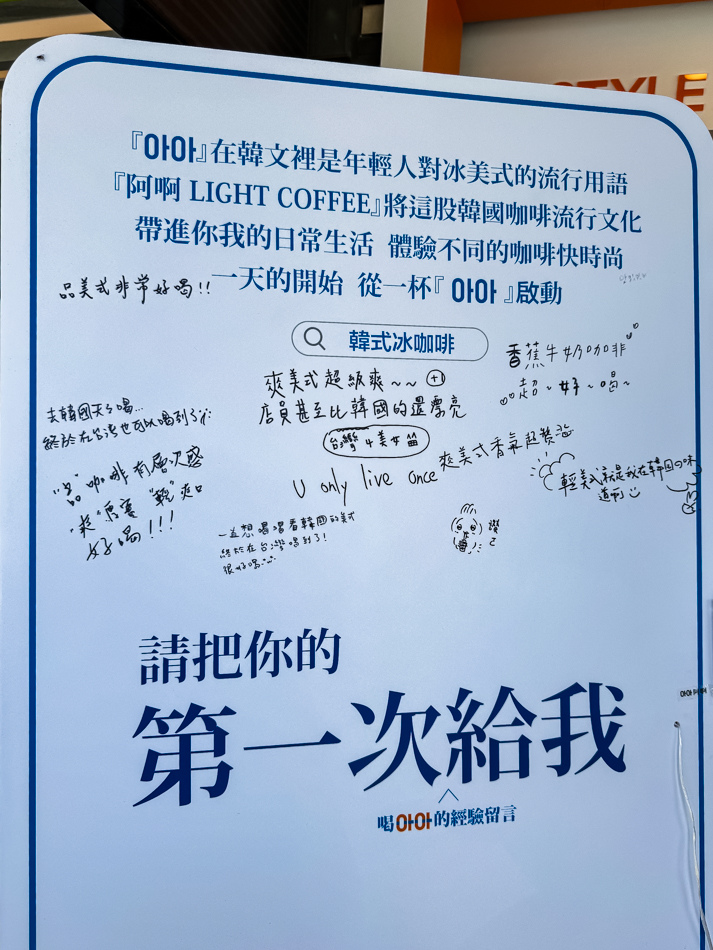 STYLE
『아아』在韓文裡是年輕人對冰美式的流行用語
『阿啊 LIGHT COFFEE』將這股韓國咖啡流行文化
帶進你我的日常生活 體驗不同的咖啡快時尚
一天的開始 從一杯『아아』啟動
品美式非常好喝!!
韓式冰咖啡
香蕉牛奶咖啡
超~好~喝~
爽美式超級爽~~
店員甚至比韓國的還漂亮
去韓國天天喝...
終於在台灣也可以喝到了
爽美式香氣超讚
U only live once
輕美式就是我在韓国の味
道啊
咖啡有層次感
爽口
好喝!!!
一直想喝喝看韓國的美式
終於在台灣喝到了!
很好喝
請把你的
第一次給我
喝아아的經驗留言